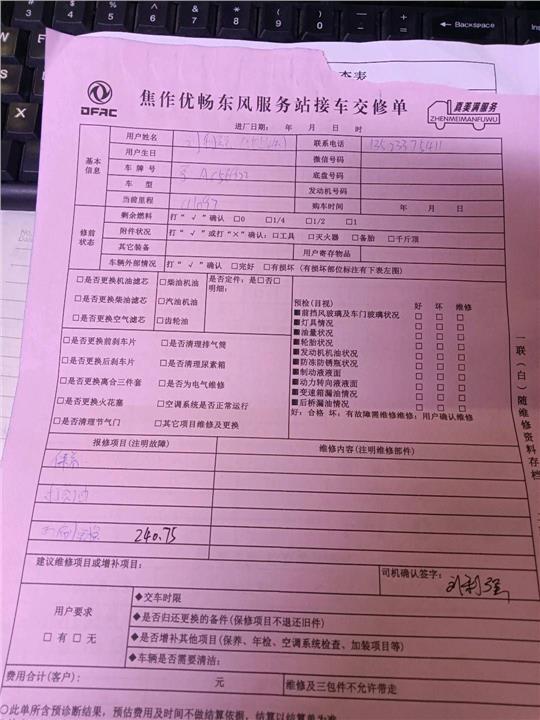 杰表
DFAC
焦作优畅东风服务站接车交修单
真美满服务
ZHENMEIMANFUWU
进厂日期： 年 月 日 时
基本信息
用户姓名 联系电话
用户生日 微信号码
车 牌 号 底盘号码
车 型 发动机号码
当前里程 购车时间 年 月 日
修前状态
剩余燃料 打“√”确认 □0 □1/4 □1/2 □1
附件状况 打“√”或打“×”确认：□工具 □灭火器 □备胎 □千斤顶
其它装备 用户寄存物品
车辆外部情况 打“√”确认 □完好 □有损坏（有损坏部位标注有下表左图）
□是否更换机油滤芯 □柴油机油 是否定件：是□否□
□是否更换柴油滤芯 □汽油机油 明细：
□是否更换空气滤芯 □齿轮油
□是否更换前刹车片 □是否清理排气筒
□是否更换后刹车片 □是否清理尿素箱
□是否更换离合三件套 □是否为电气维修
□是否更换火花塞 □空调系统是否正常运行
□是否清理节气门 □其它项目维修及更换
预检（目视） 好 坏 维修
■前挡风玻璃及车门玻璃状况 □ □ □
■灯具情况 □ □ □
■油量状况 □ □ □
■轮胎状况 □ □ □
■发动机机油状况 □ □ □
■防冻防锈瓶状况 □ □ □
■制动液液面 □ □ □
■动力转向液液面 □ □ □
■变速箱漏油情况 □ □ □
■后桥漏油情况 □ □ □
好：合格 坏：有故障需维修维修：用户确认维修
一联（白）随维修资料存档
报修项目（注明故障） 维修内容（注明维修部件）
保养
240.75
建议维修项目或增补项目：
司机确认签字： 刘利强
用户要求
□有□无
◆交车时限
◆是否归还更换的备件（保修项目不退还旧件）
◆是否增补其他项目（保养、年检、空调系统检查、加装项目等）
◆车辆是否需要清洁：
费用合计（客户）： 元 维修及三包件不允许带走
○此单所含预诊断结果，预估费用及时间不做结算依据，结算以结算单为准